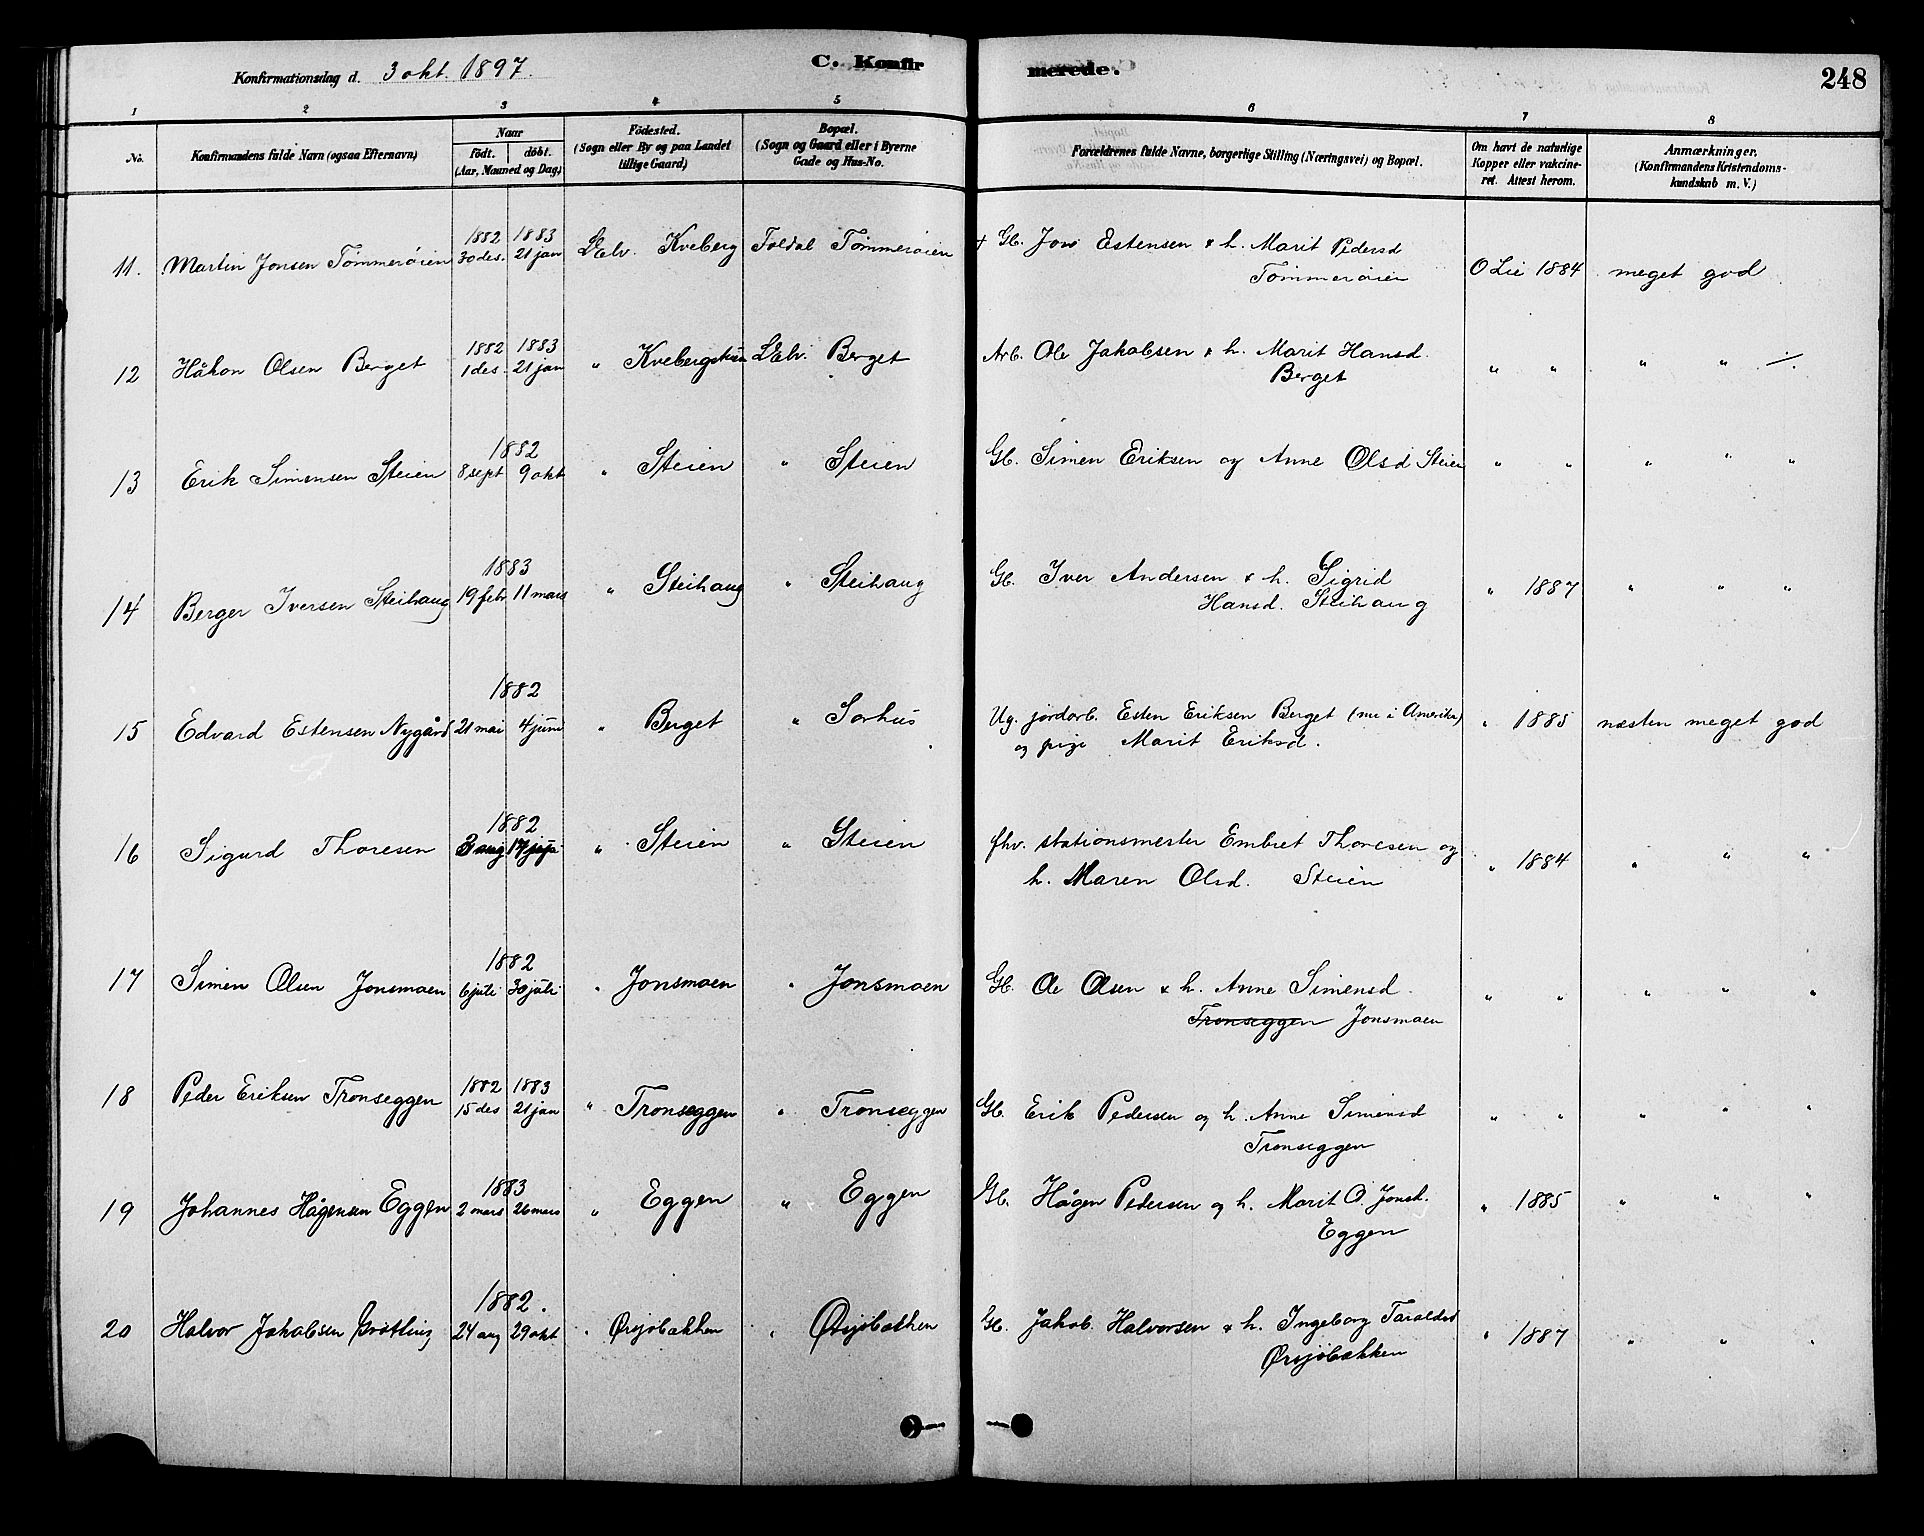 Konfirmationsdag d. 3 okt. 1897.
C. Konfirmerede.
248
1 2 3 4 5 6 7 8
No.
Konfirmandens fulde Navn (ogsaa Efternavn)
Naar
födt. döbt.
(Aar, Maaned og Dag)
Födested.
(Sogn eller By og paa Landet
tillige Gaard)
Bopæl.
(Sogn og Gaard eller i Byerne
Gade og Hus-No.
Forældrenes fulde Navne, borgerlige Stilling (Næringsvei) og Bopæl.
Om havt de naturlige
Kopper eller vakcine-
ret. Attest herom.
Anmærkninger.
(Konfirmandens Kristendoms-
kundskab m. V.)
1882 1883
11. Martin Jonsen Tømmerøien 30 des. 21 jan Lælv. Kveberg Foldal Tømmerøien + Gb. Jons Estensen & h. Marit Pedersd
Tømmerøien O Lie 1884 meget god
1882 1883
12 Håkon Olsen Berget 1 des. 21 jan " Kvebergshus Lælv. Berget Arb. Ole Jakobsen & h. Marit Hansd.
Berget " " " " ./.
1882
13 Erik Simensen Steien 8 sept 9 okt " Steien " Steien Gb. Simen Eriksen og Anne Olsd Steien " " " " "
1883
14 Berger Iversen Steihaug 19 febr 11 mars " Steihaug " Steihaug Gb. Iver Andersen & h. Sigrid
Hansd. Steihaug " 1887 " " "
1882
15 Edvard Estensen Nygård 21 mai 4 juni " Berget " Sorhus Ug. jordarb. Esten Eriksen Berget (nu i Amerika)
og pige Marit Eriksd. " 1885 næsten meget god
1882
16 Sigurd Thoresen 3 aug 17 " Steien " Steien fhv. stationsmester Embret Thoresen og
h. Maren Olsd. Steien " 1884 " " "
1882
17 Simen Olsen Jonsmoen 6 juli 30 juli " Jonsmoen " Jonsmoen Gb. Ole Olsen & h. Anne Simensd.
Tronseggen Jonsmoen " " " " "
1882 1883
18 Peder Eriksen Tronseggen 15 des 21 jan " Tronseggen " Tronseggen Gb. Erik Pedersen og h. Anne Simensd
Tronseggen " " " " "
1883
19 Johannes Hågensen Eggen 2 mars 26 mars " Eggen " Eggen Gb. Hågen Pedersen og h. Marit O. Jonsd.
Eggen " 1885 " " "
1882.
20 Halvor Jakobsen Brøtting 24 aug 29 okt. " Ørsjøbakken " Ørsjøbakken Gb. Jakob Halvorsen & h. Ingeborg Taraldsd
Ørsjøbakken " 1887 " " "